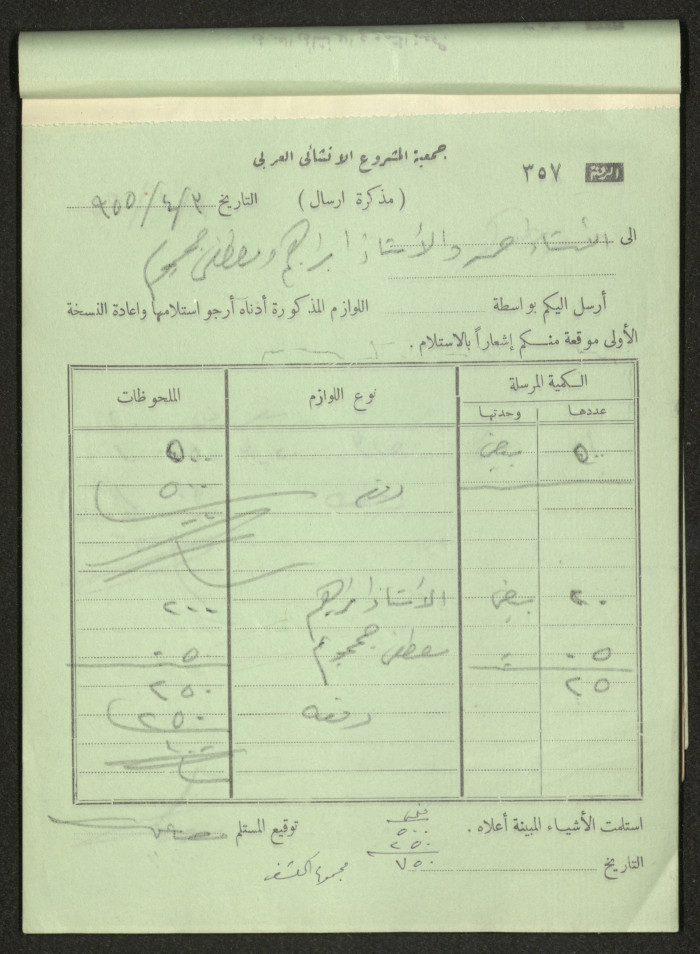 جمعية المشروع الانشائي العربي
الرقم ٣٥٧
( مذكرة ارسال ) التاريخ ٣ / ٤ / ٩٥٥
الى الأستاذ حمد والأستاذ ابراهيم ومصطفى جمجوم
أرسل اليكم بواسطة اللوازم المذكورة أدناه أرجو استلامها واعادة النسخة
الأولى موقعة منكم إشعاراً بالاستلام .
الكمية المرسلة نوع اللوازم الملحوظات
عددها وحدتها
٥٠ بيض ٥٠٠
دفعه ٥٠٠
٢٠ بيض الأستاذ ابراهيم ٢٠٠
٠٥ مصطفى جمجوم ٥٠
٢٥ ٢٥٠
دفعه ٢٥٠
استلمت الأشياء المبينة أعلاه . توقيع المستلم
٥٠٠
٢٥٠
التاريخ ٧٥٠ مجموع الكشف